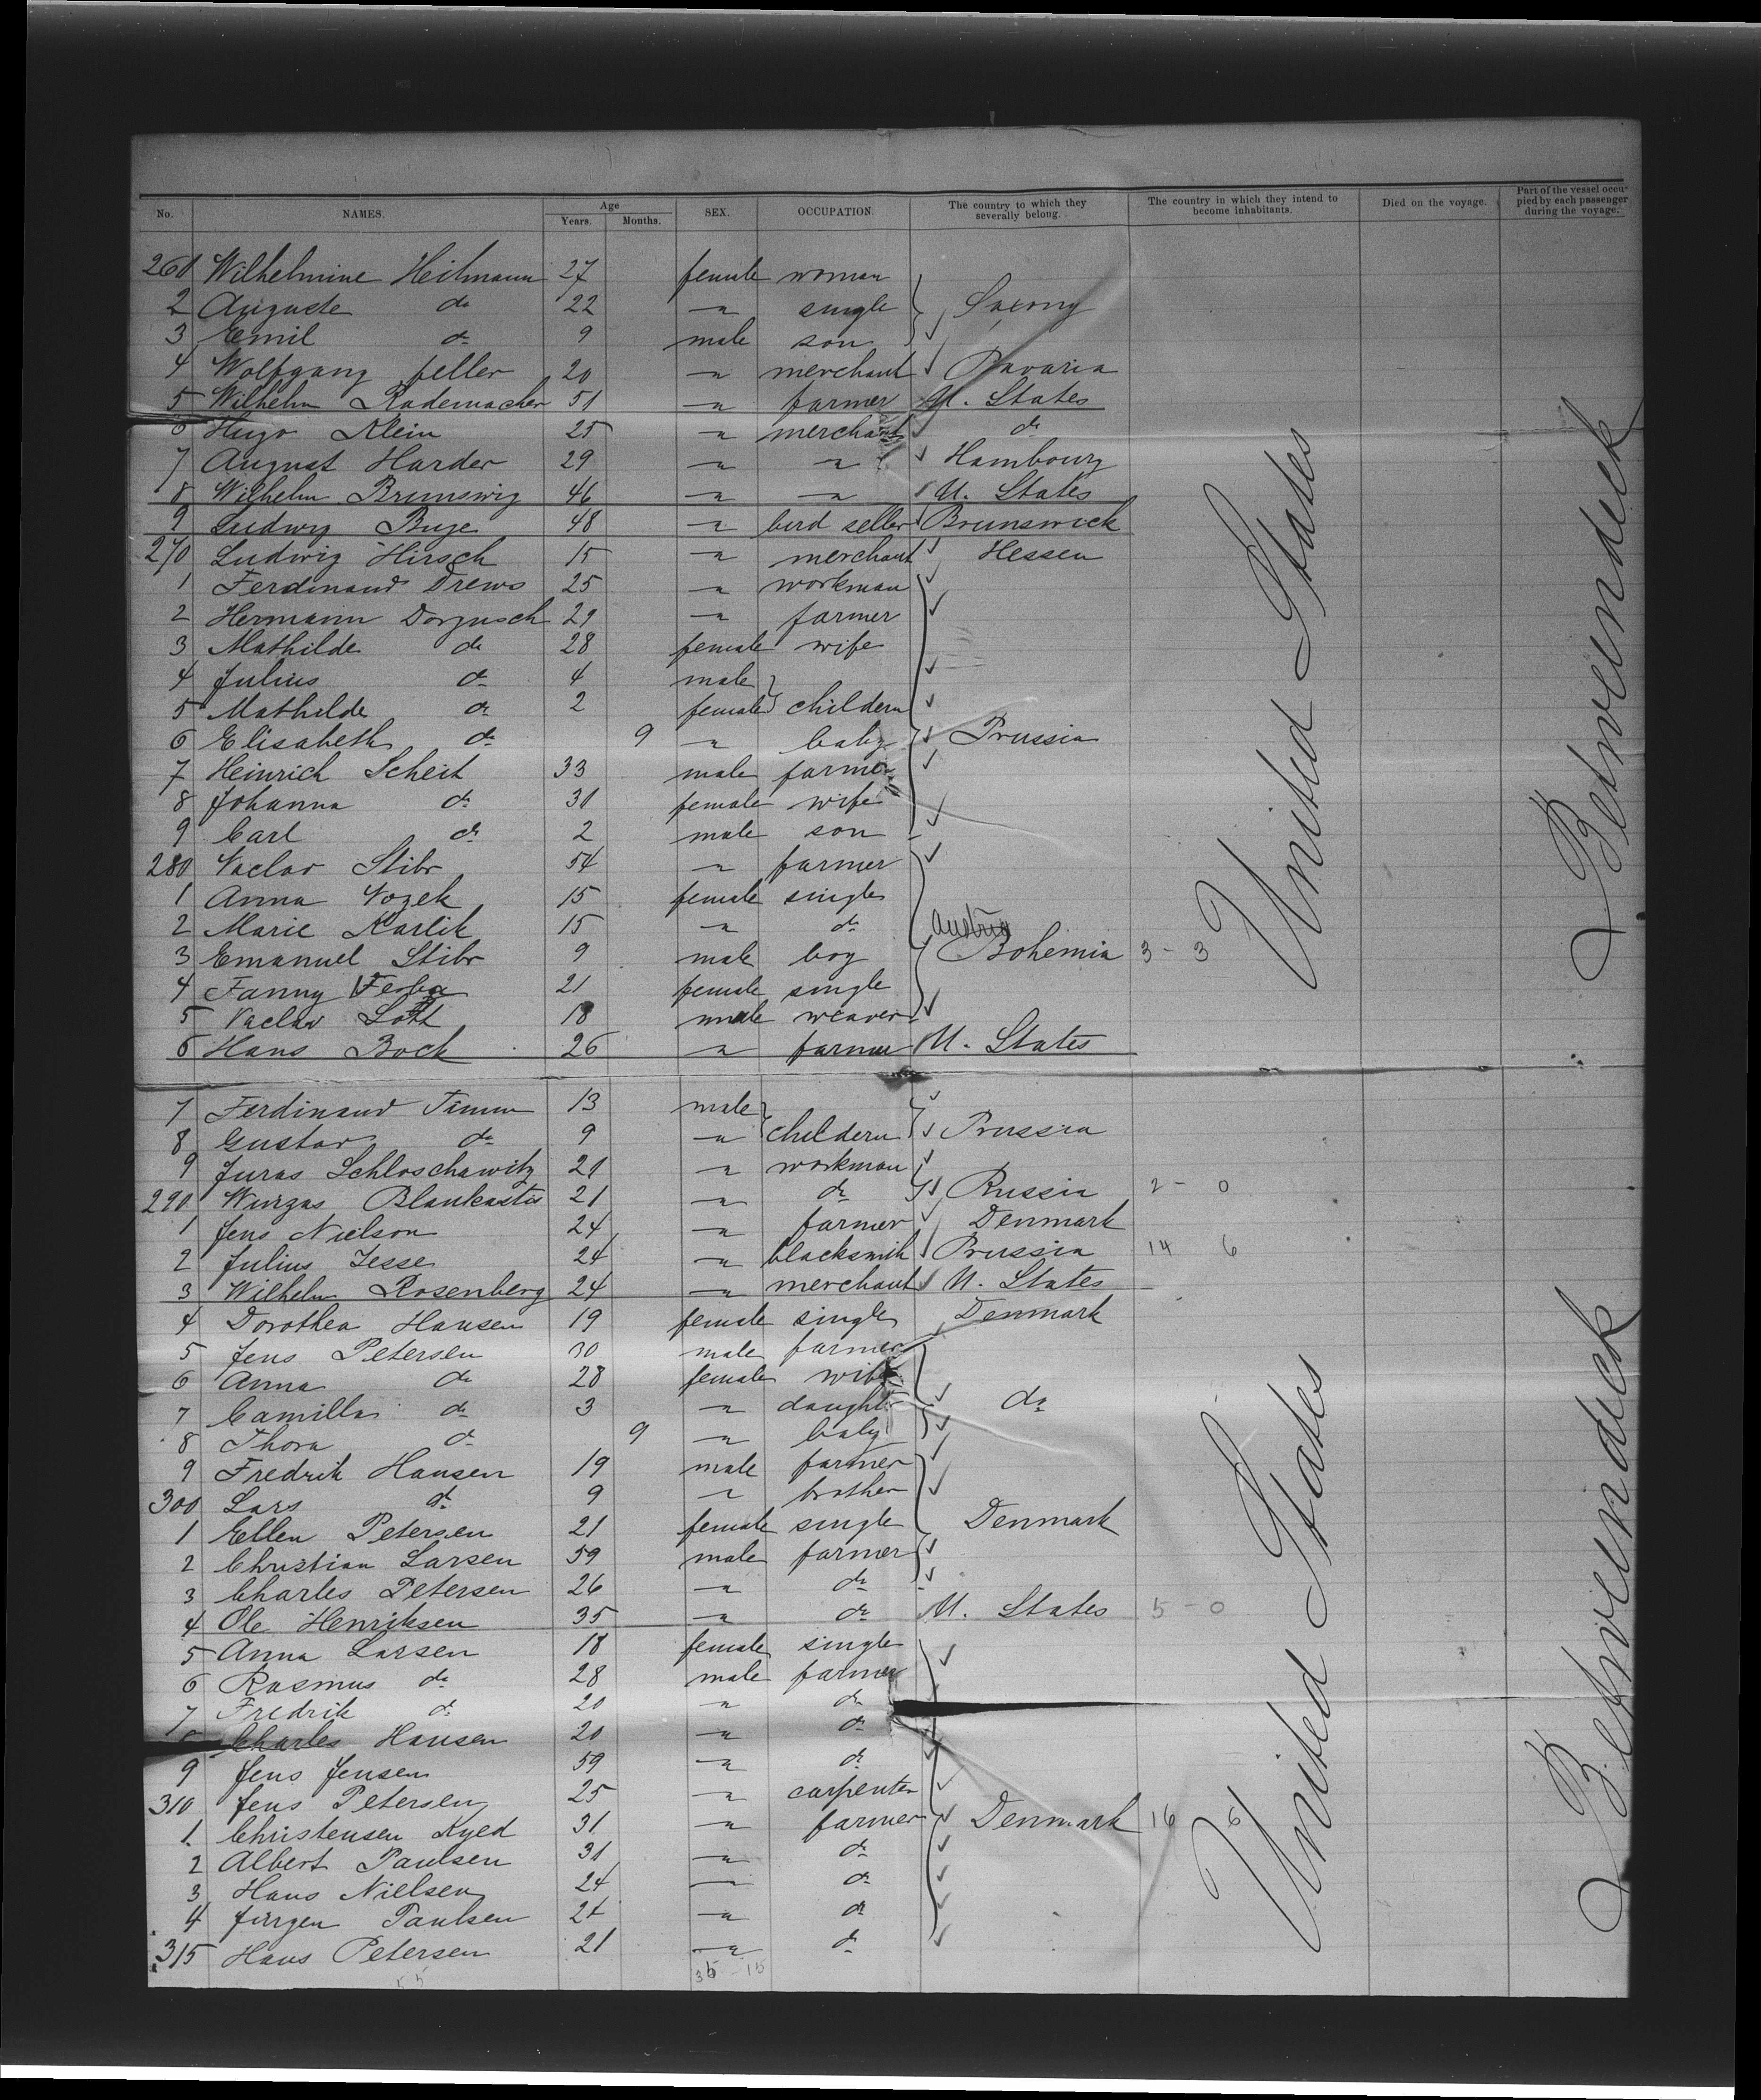 No. NAMES. Age Years. Months. SEX. OCCUPATION. The country to which they severally belong. The country in which they intend to become inhabitants. Died on the voyage. Part of the vessel occupied by each passenger during the voyage.
261 Wilhelmine Heilmann 27 female woman
2 Auguste do 22 " single Saxony
3 Emil do 9 male son
4 Wolfgang feller 20 " merchant Bavaria
5 Wilhelm Rademacher 51 " farmer U. States
6 Hugo Klein 25 " merchant do
7 August Harder 29 " " Hambourg
8 Wilhelm Brunswig 46 " " U. States
9 Ludwig Ruge 48 " bird seller Brunswick
270 Ludwig Hirsch 15 " merchant Hessen
1 Ferdinand Drews 25 " workman
2 Hermann Dorjusch 29 " farmer
3 Mathilde do 28 female wife
4 Julius do 4 male
5 Mathilde do 2 female childern
6 Elisabeth do 9 " baby Prussia
7 Heinrich Scheit 33 male farmer
8 Johanna do 31 female wife
9 Carl do 2 male son
280 Vaclav Stibr 54 " farmer
1 Anna Vozek 15 female single
2 Marie Karlik 15 " do Austria
3 Emanuel Stibr 9 male boy Bohemia 3 - 3
4 Fanny 21 female single
5 Vaclav Lott 18 male weaver
6 Hans Bock 26 " farmer U. States
United States
Betweendeck
7 Ferdinand Timm 13 male
8 Gustav do 9 " childern Prussia
9 Juras Schloschawitz 21 " workman
290 Wurgas Blaukastis 21 " do Russia 2 - 0
1 Jens Nielson 24 " farmer Denmark
2 Julius Jesse 24 " blacksmith Prussia 14 6
3 Wilhelm Rosenberg 24 " merchant U. States
4 Dorothea Hansen 19 female single Denmark
5 Jens Petersen 30 male farmer
6 Anna do 28 female wife
7 Camilla do 3 " daughter do
8 Thora do 9 " baby
9 Fredrik Hansen 19 male farmer
300 Lars do 9 " brother
1 Ellen Petersen 21 female single Denmark
2 Christian Larsen 59 male farmer
3 Charles Petersen 26 " do
4 Ole Henriksen 35 " do U. States 5 - 0
5 Anna Larsen 18 female single
6 Rasmus do 28 male farmer
7 Fredrik do 20 " do
8 Charles Hansen 20 " do
9 Jens Jensen 59 " do
310 Jens Petersen 25 " carpenter
1 Christensen Kyed 31 " farmer Denmark 16 6
2 Albert Paulsen 31 " do
3 Hans Nielsen 24 " do
4 Jürgen Paulsen 24 " do
315 Hans Petersen 21 " do
United States
Betweendeck
55 35 - 15